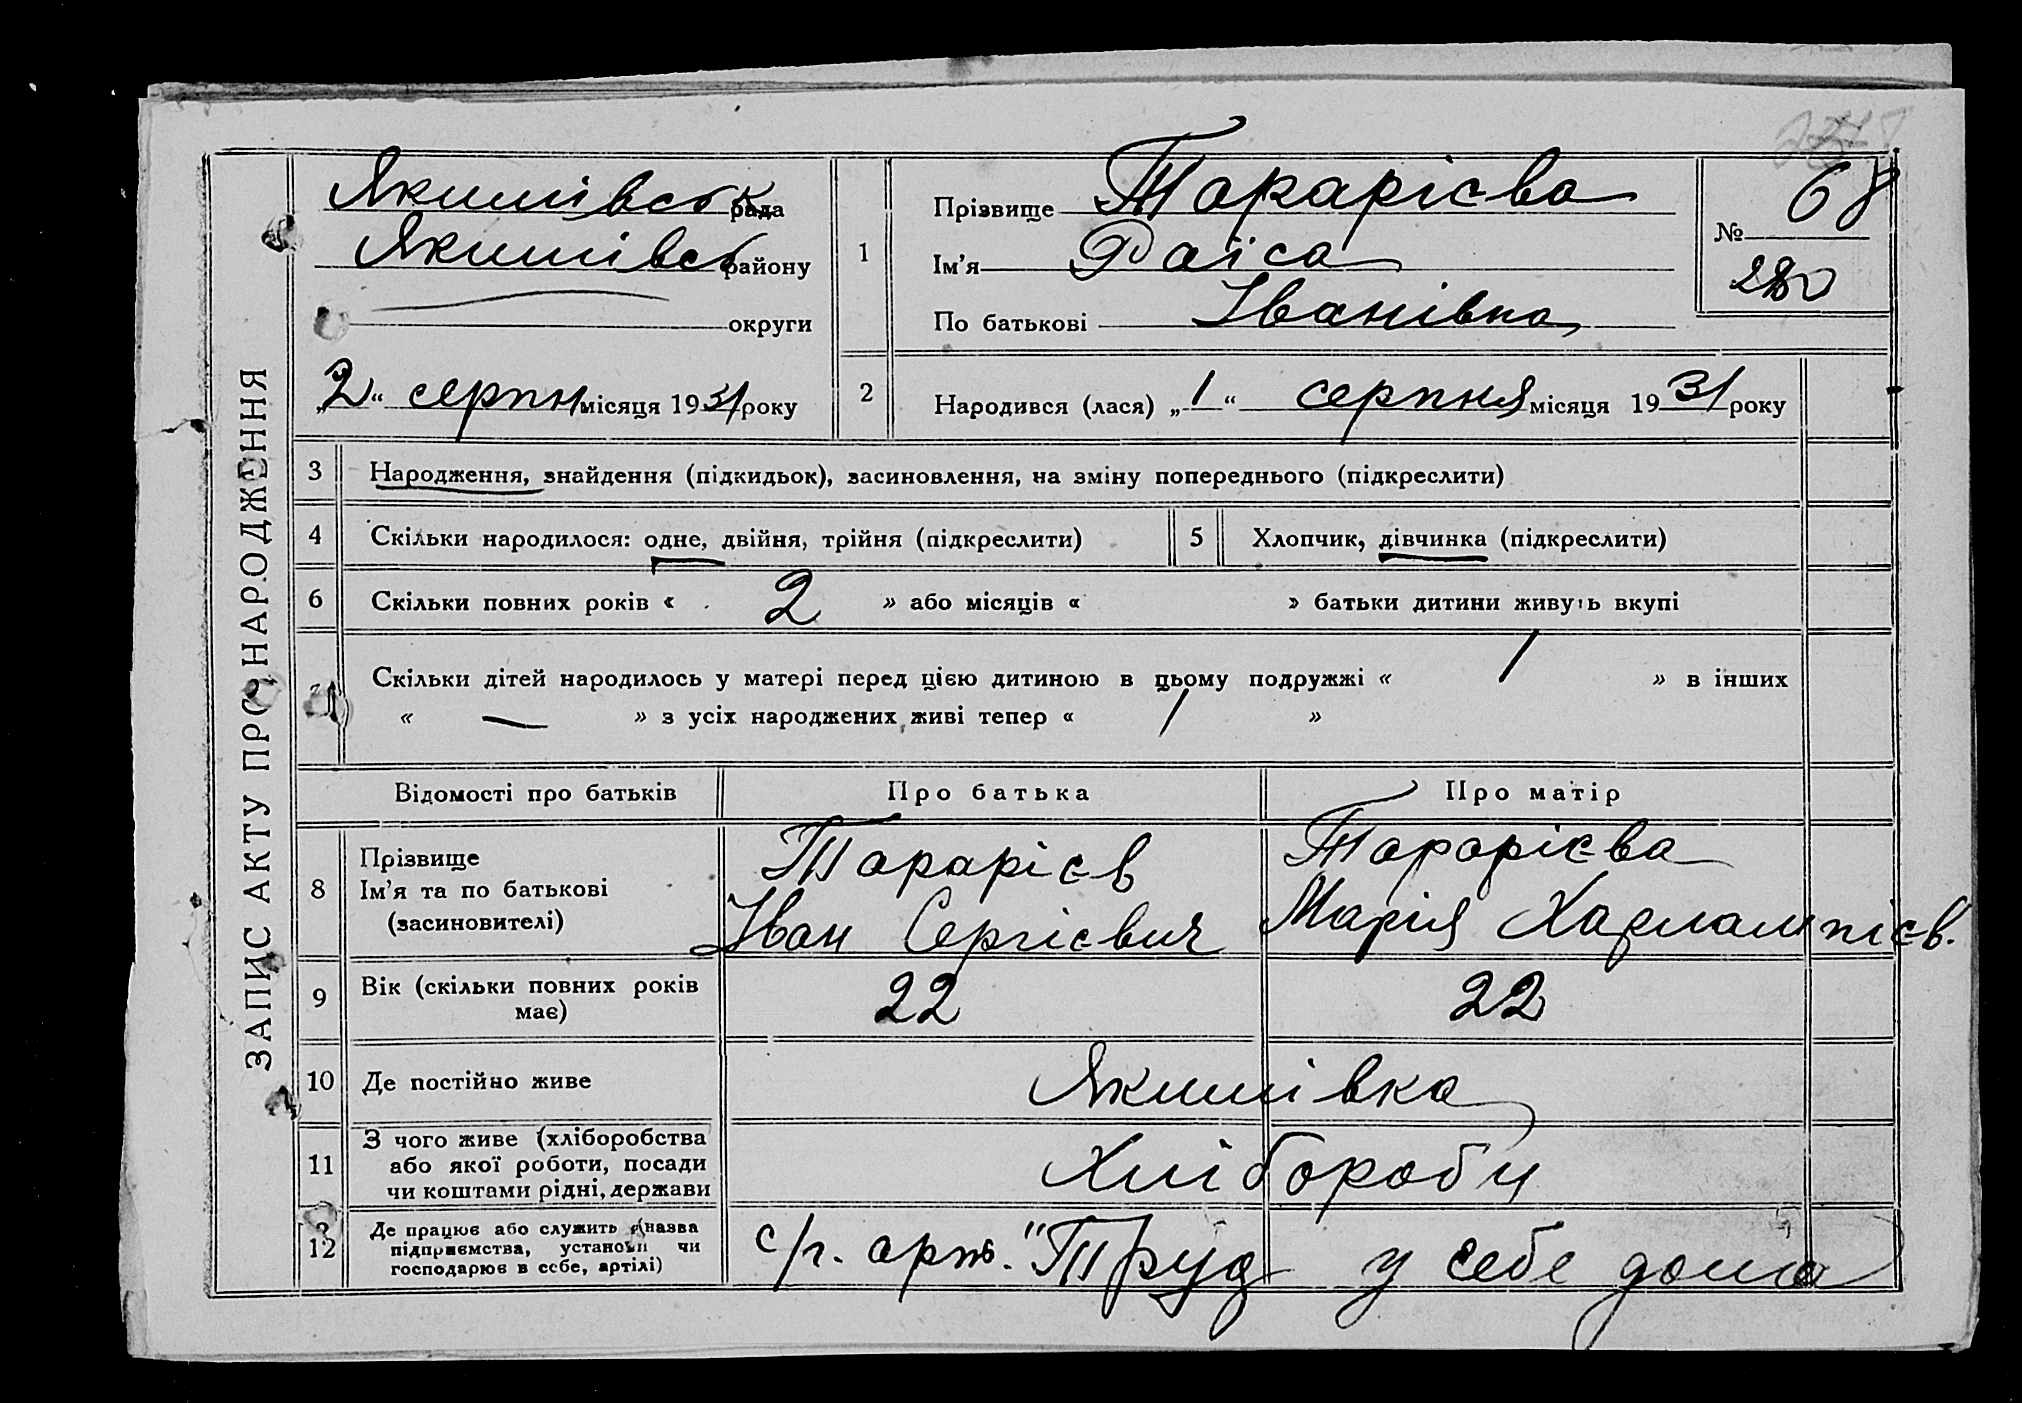 ЗАПИС АКТУ ПРО НАРОДЖЕННЯ
Якимівськ рада
Якимівсь району
округи
„2“ серпн місяця 1931 року
1
Прізвище Тарарієва
Ім'я Раїса
По батькові Іванівна
№ 68
280
2
Народився (лася) „1“ серпня місяця 1931 року
3 Народження, знайдення (підкидьок), засиновлення, на зміну попереднього (підкреслити)
4 Скільки народилося: одне, двійня, трійня (підкреслити) 5 Хлопчик, дівчинка (підкреслити)
6 Скільки повних років « 2 » або місяців « » батьки дитини живуть вкупі
Скільки дітей народилось у матері перед цією дитиною в цьому подружжі « 1 » в інших
« — » з усіх народжених живі тепер « 1 »
Відомості про батьків Про батька Про матір
8 Прізвище Ім'я та по батькові (засиновителі)
Тарарієв
Іван Сергієвич
Тарарієва
Марія Харлампієв.
9 Вік (скільки повних років має) 22 22
10 Де постійно живе Якимівка
11 З чого живе (хліборобства або якої роботи, посади чи коштами рідні, держави Хлібороби
12 Де працює або служить (назва підприємства, установи чи господарює в себе, артілі) с/г. арт. "Труд у себе дома